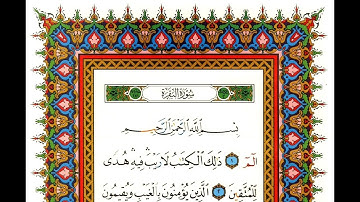 سُورَةُ البَقَرَةِ
بِسۡمِ ٱللَّهِ ٱلرَّحۡمَٰنِ ٱلرَّحِيمِ
الٓمٓ ١ ذَٰلِكَ ٱلۡكِتَٰبُ لَا رَيۡبَۛ فِيهِۛ هُدٗى
لِّلۡمُتَّقِينَ ٢ ٱلَّذِينَ يُؤۡمِنُونَ بِٱلۡغَيۡبِ وَيُقِيمُونَ